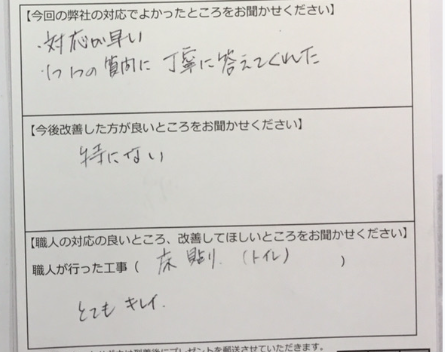 【今回の弊社の対応でよかったところをお聞かせください】
・対応が早い
・1つ1つの質問に丁寧に答えてくれた
【今後改善した方が良いところをお聞かせください】
特にない
【職人の対応の良いところ、改善してほしいところをお聞かせください】
職人が行った工事（ 床貼り.（トイレ） ）
とても キレイ.
プレゼントを郵送させていただきます。